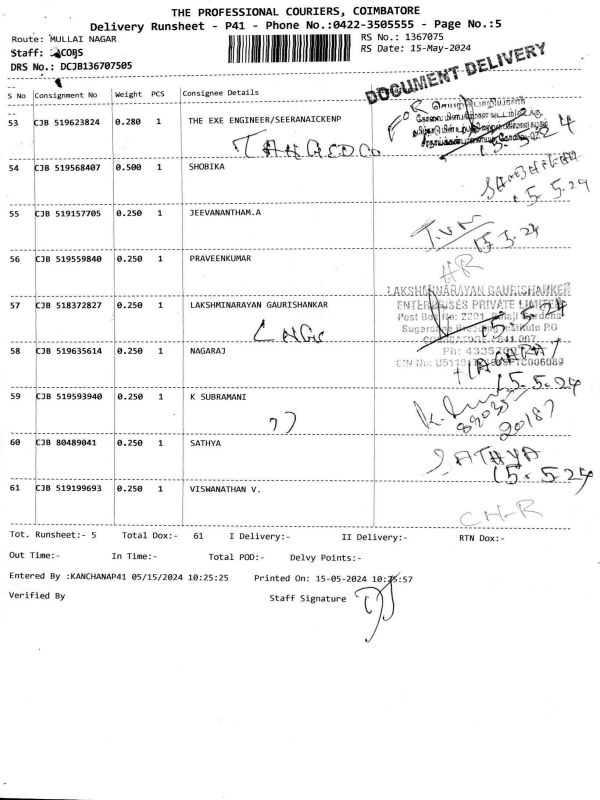 THE PROFESSIONAL COURIERS, COIMBATORE
Delivery Runsheet - P41 - Phone No.:0422-3505555 - Page No.:5
Route: MULLAI NAGAR
RS No.: 1367075
Staff: JACOBS
RS Date: 15-May-2024
DRS No.: DCJB136707505
DOCUMENT DELIVERY
S No Consignment No Weight PCS Consignee Details
53 CJB 519623824 0.280 1 THE EXE ENGINEER/SEERANAICKENP
TANGEDCO
54 CJB 519568407 0.500 1 SHOBIKA
15.5.24
55 CJB 519157705 0.250 1 JEEVANANTHAM.A
56 CJB 519559840 0.250 1 PRAVEENKUMAR
HR
LAKSHMINARAYAN GAURISHANKER
ENTERPRISES PRIVATE LIMITED
57 CJB 518372827 0.250 1 LAKSHMINARAYAN GAURISHANKAR
15.5.24
58 CJB 519635614 0.250 1 NAGARAJ
NAGARAJ
15.5.24
59 CJB 519593940 0.250 1 K SUBRAMANI
20187
60 CJB 80489041 0.250 1 SATHYA
SATHYA
15.5.24
61 CJB 519199693 0.250 1 VISWANATHAN V.
Tot. Runsheet:- 5 Total Dox:- 61 I Delivery:- II Delivery:- RTN Dox:-
Out Time:- In Time:- Total POD:- Delvy Points:-
Entered By :KANCHANAP41 05/15/2024 10:25:25 Printed On: 15-05-2024 10:25:57
Verified By Staff Signature